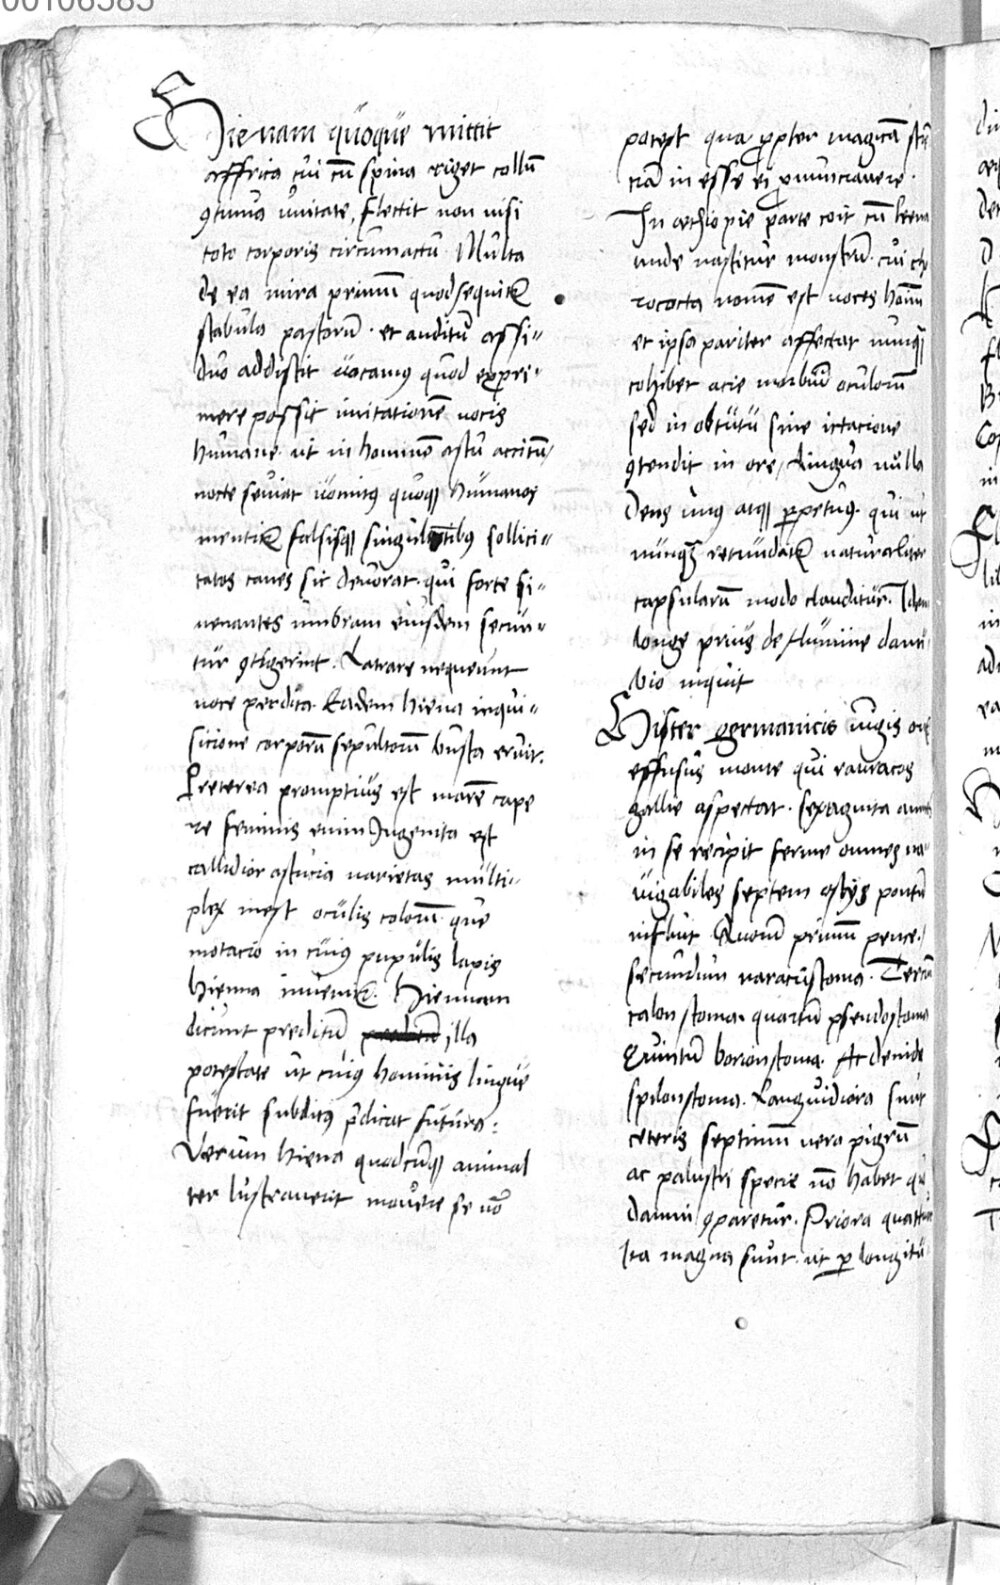 00106385
Hienam quoque mittit
affrica cui cū spina riget collū
ꝯtinua unitate, flectit non nisi
toto corporis circumactu. Multa
de ea mira primū quod sequit᷑
stabula pastorū. et auditu assi-
duo addiscit uocamꝰ quod expri-
mere possit imitationē uocis
humane. ut in hominē astu accitū
nocte seuiat uomitꝰ quoqꝫ humanos
mentit᷑ falsisqꝫ singultibꝰ sollici-
tatos canes sic deuorat. qui forte si
uenantes umbram eiusdem secun-
tur ꝯtigerint. Latrare nequeunt
uoce perdita. Eadem hiena inqui-
sicione corporū sepultorū busta eruit.
Preterea promptius est marē cape
re feminis enim Ingenita est
callidior astucia varietas multi-
plex inest oculis colorū que
motacio in cuiꝰ pupulis lapis
hienna inuenit᷑. Hiennam
dicunt preditū illa
potestate ut cuiꝰ hominis lingue
fuerit subditꝰ p̄dicat futura:
Verum hiena quodcūqꝫ animal
ter lustrauerit mouere se nō
potest qua ꝓpter magicā sciē
ciā in esse ei ꝓnunciauere.
In aethiopie parte coit cū leena
unde nascitur monstrū. cui cho
rococta nomē est uoces hoīnū
et ipsa pariter affectat nunqꝫ
cohibet acie morbiū oculorū
sed in obtutū sine ictacione
ꝯtendit in ore, Lingua nulla
dens unꝰ atqꝫ ꝑpetuꝰ. qui ut
nunqꝫ retundat᷑ naturaliter
capsularū modo clauditur. Idem
longe prius de flumine danu
bio inquit
Hister germanicis iugis ori
effusus monte qui rauracos
gallie aspectat. sexaginta amnes
in se recipit ferme omnes na-
uigabiles septem ostijs pontū
influit Quorū primū peuce.
secundum naracustoma. Terciū
calon stoma. quartū pseudostoma
Quintū borionstoma. Ac deinde
spilonstoma. Languidiora sunt
ceteris septimū uero pigrū
ac palustri specie nō habet qd
damni ꝯparetur. Priora quattuor
Ita magna sunt. ut ꝑ longitu